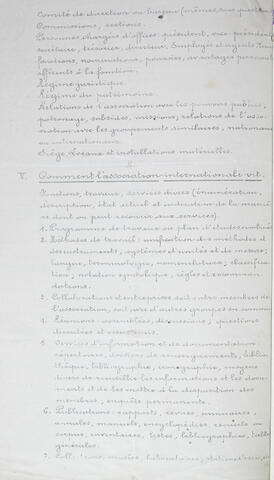 Comité de direction ou bureau (mêmes sous questions)
Commissions, sections.
Personnes chargées d'offices: président, vice président
secrétaire, trésorier, directeur. Employés et agents. Leurs
fonctions, nominations, pouvoirs, avantages personnels
afférents à la fonction.
Régime juridique.
Régime du patrimoine.
Relations de l'association avec les pouvoirs publics:
patronage, subsides, missions; relations de l'asso-
ciation avec les groupements similaires, nationaux
ou internationaux.
Siège, locaux et installations matérielles.
V. Comment l'association internationale vit.
Fonctions, travaux, services divers (énumération,
description, état actuel et indication de la maniè-
re dont on peut recourir aux services).
1. Programme de travaux ou plan d'études
2. Méthodes de travail: unification des méthodes et
des instruments; systèmes d'unités et de mesures;
langue, terminologie, nomenclature, classifica-
tion; notation symbolique, règles et recomman-
dations.
3. Collaborations et entreprises soit entre membres de
l'association, soit avec d'autres groupes en commun
4. Réunions: assemblées, discussions, questions
discutées et résolutions.
5. Services d'information et de documentation:
répertoires, dossiers de renseignements, biblio-
thèque, bibliographie, iconographie, moyens
divers de recueillir les informations et les docu-
ments et de les mettre à la disposition des
membres, enquête permanente.
6. Publications: rapports, revues, annuaires,
annales, manuels, encyclopédies, recueils ou
corpus, inventaires, listes, bibliographies, tables
générales.
7. Collections, musées, laboratoires, stations